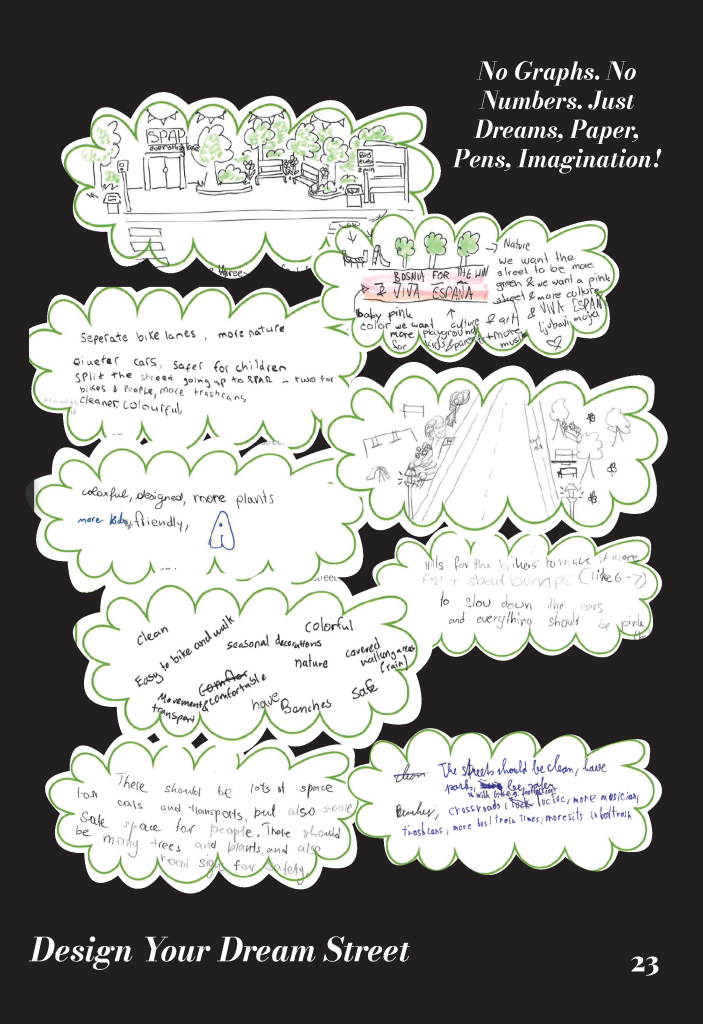 No Graphs. No
Numbers. Just
Dreams, Paper,
Pens, Imagination!
SPAP
everothing here
BUS
even
2 min
Nature
we want the
street to be more
green & we want a pink
street & more culture
& VIVA ESPAÑ
ljubavi moja
BOSNIA FOR THE WIN
& VIVA ESPAÑA
baby pink
color we want culture & art
more playground
for kids & parents + more
music
Seperate bike lanes, more nature
Qiueter cars, safer for children
Split the street going up to SPAR in two for
bikes & people, more trashcans
cleaner, colourful
colorful, designed, more plants
more kids friendly,
Hills for the bikers to make it more
fun + speed bumps (like 6-7)
to slow down the cars
and everything should be pink
clean
Easy to bike and walk
colorful
seasonal decorations
nature
covered
walking areas
(rain)
Movement &
transport
comfortable
have Benches
safe
These should be lots of space
for cals and transports, but also some
Safe space for people. There should
be many trees and plants, and also
road sign for safety.
The streets should be clean, have
be safer
Benches, crossroads, more musician,
trashcans, more bus/train times, more sits in bus/train
Design Your Dream Street
23